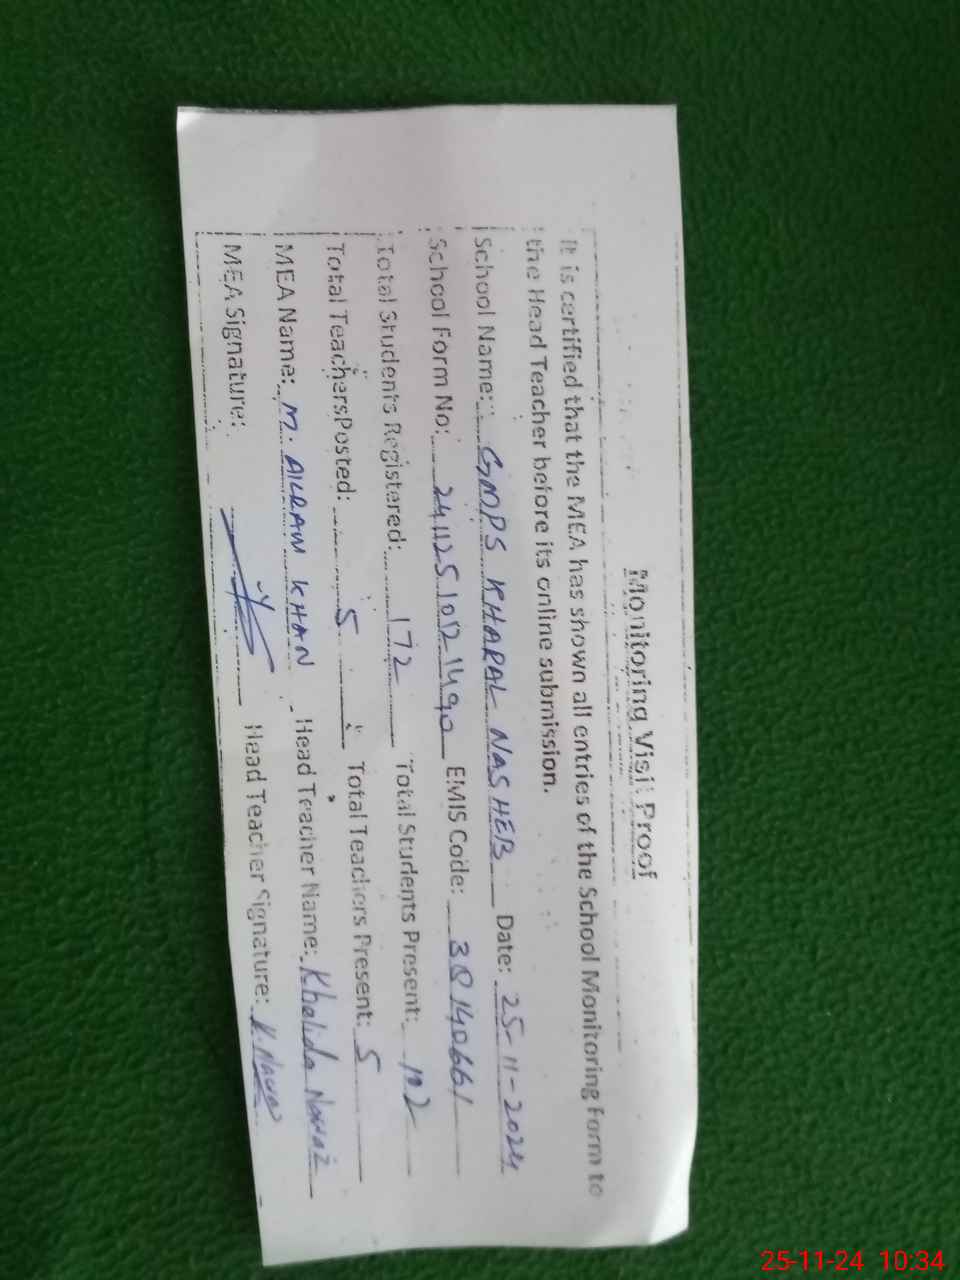 Monitoring Visit Proof
It is certified that the MEA has shown all entries of the School Monitoring Form to
the Head Teacher before its online submission.
School Name: GMPS KHARAL NASHEB Date: 25-11-2024
School Form No: 24112510121490 EMIS Code: 38140661
Total Students Registered: 172 Total Students Present: 102
Total TeachersPosted: 5 Total Teachers Present: 5
MEA Name: M. AILRAW KHAN Head Teacher Name: Khalida Nawaz
MEA Signature: Head Teacher Signature: K. Nawaz
25-11-24 10:34